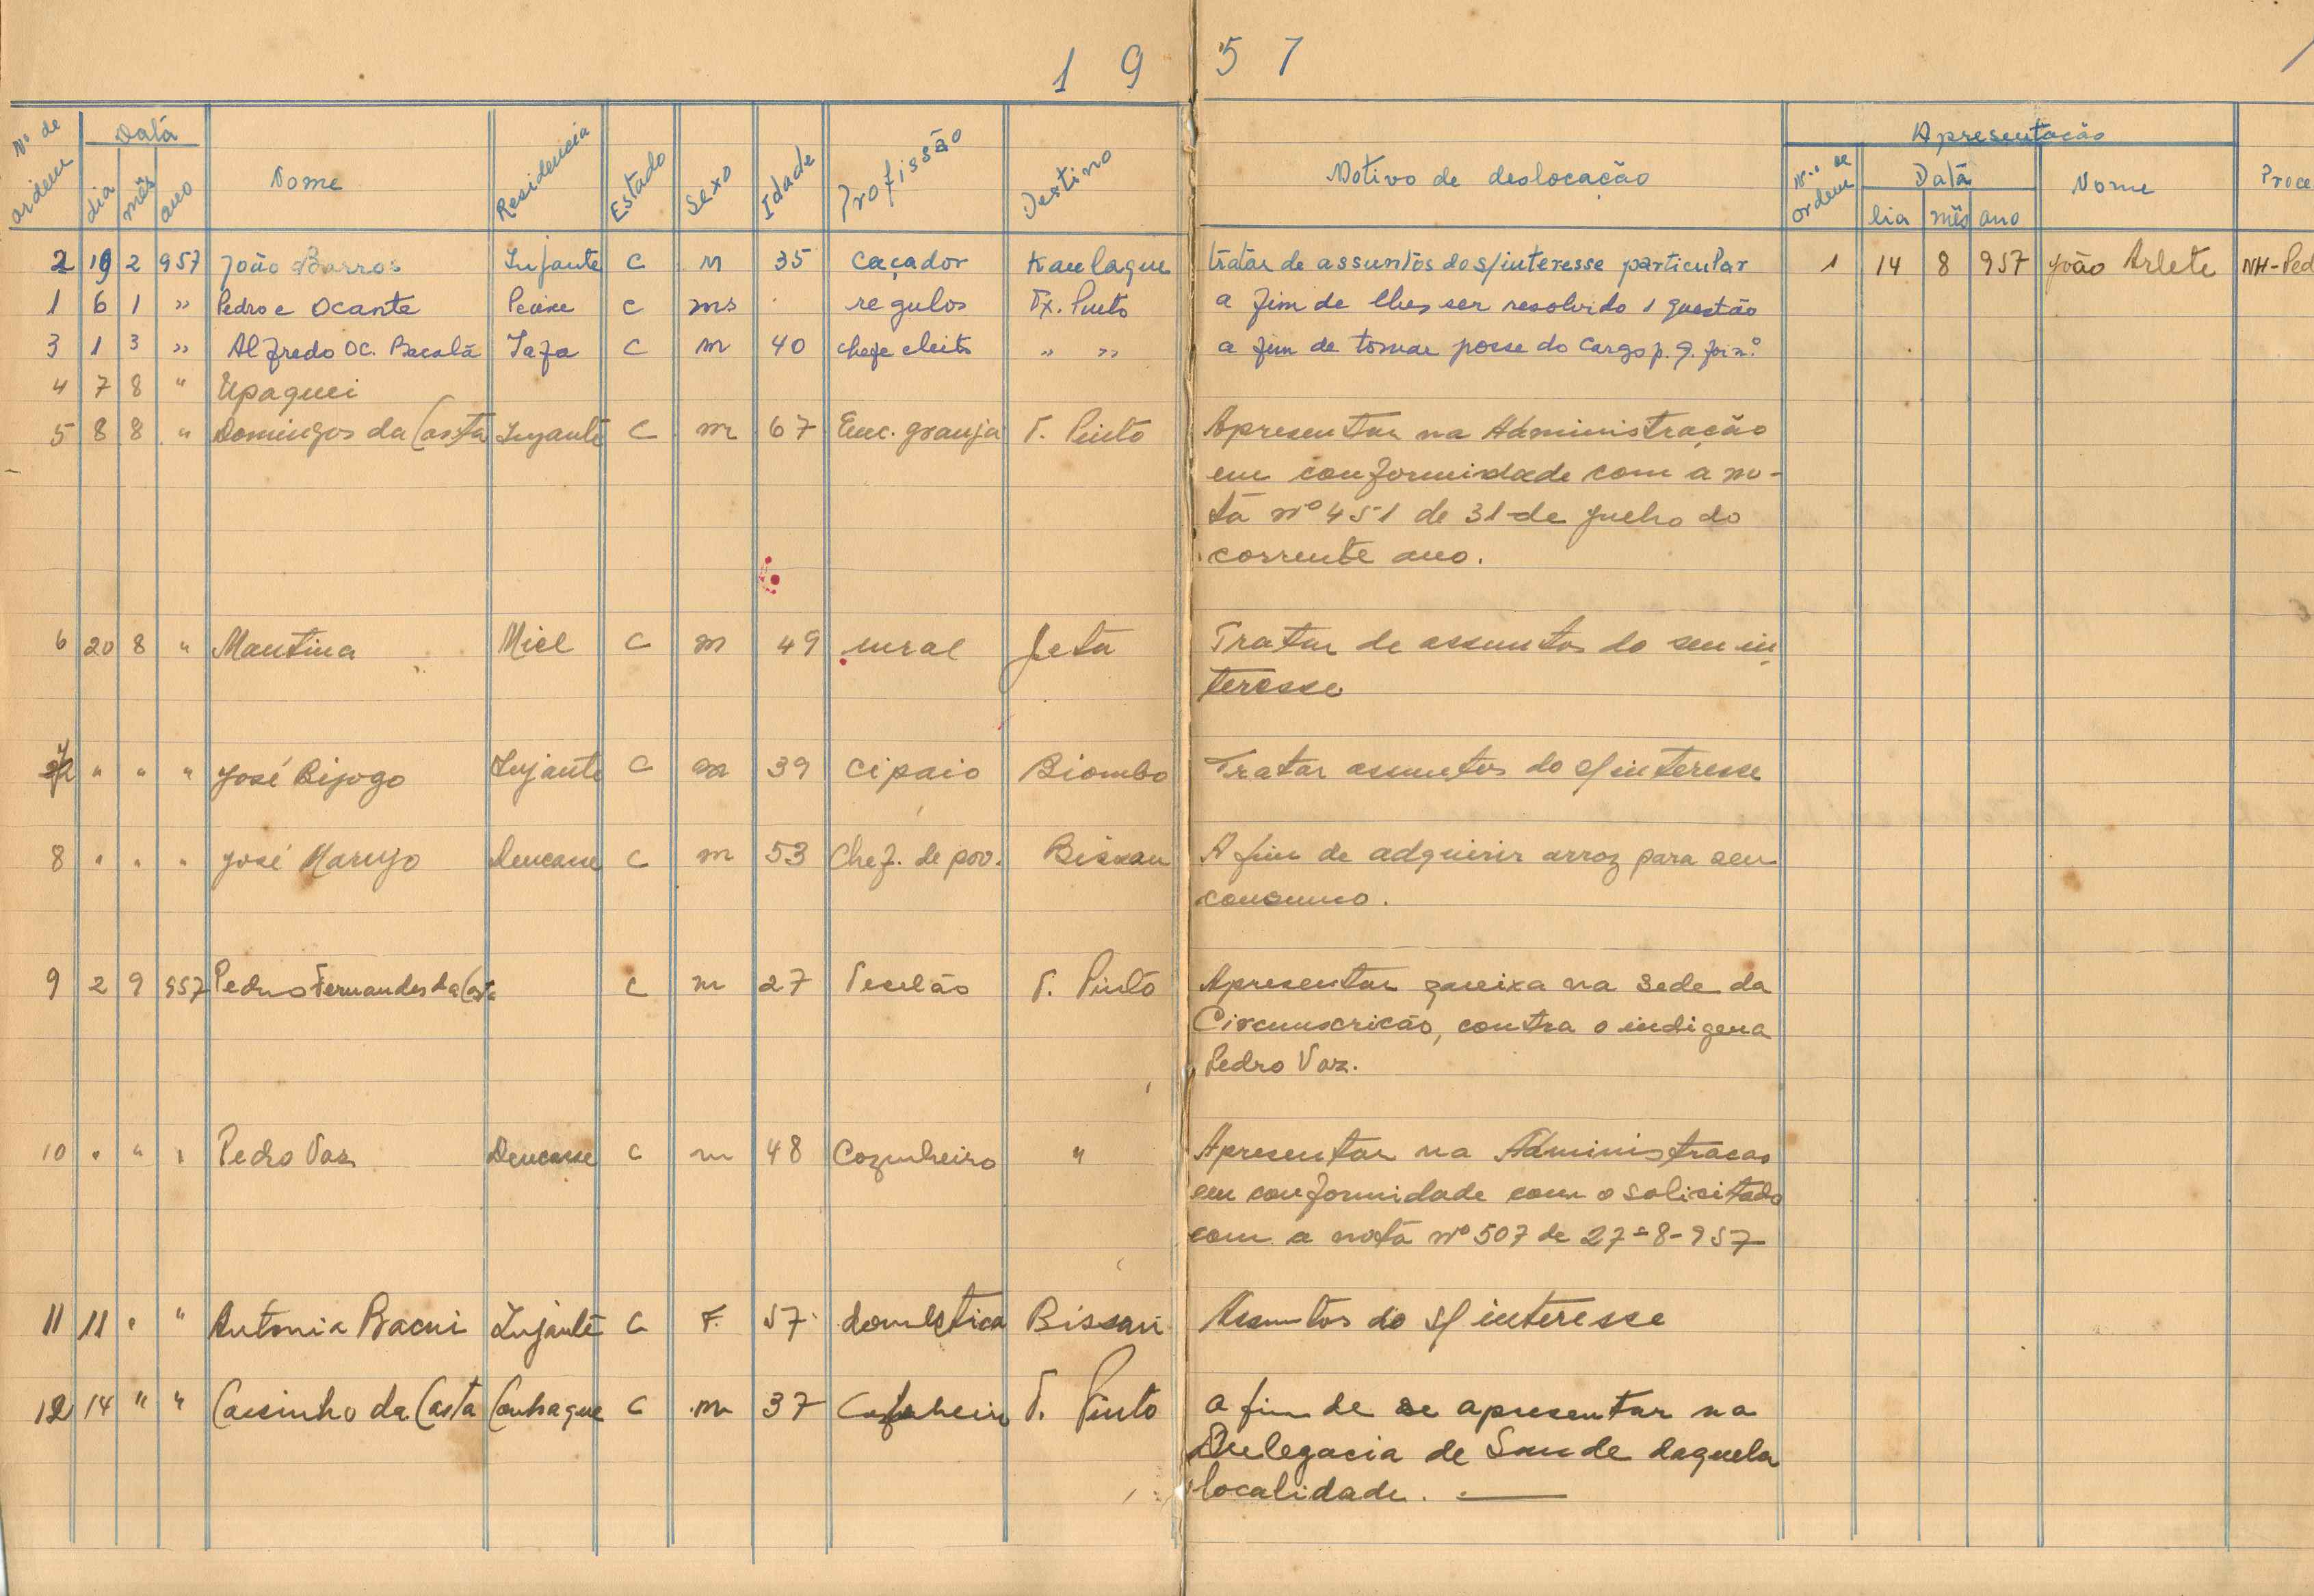 19 57
Nº de ordem Datã dia mês ano Nome Residencia Estado Sexo Idade Profissão Destino Motivo de deslocação Apresentação Nº de ordem Datã dia mês ano Nome Proce
2 19 2 957 João Barros C M 35 caçador Kaulaque tratar de assuntos do s/interesse particular 1 14 8 957 João Arlete NH-Ped
1 6 1 " Pedro e Ocante Pecixe C ms regulos Tx. Pinto a fim de lhes ser resolvido 1 questão
3 1 3 " Alfredo Oc. Bacalã C m 40 chefe eleito " " a fim de tomar posse do cargo p. q. foi n.º
4 7 8 " Upaquei
5 8 8 " Domingos da Costa C m 67 Enc. granja T. Pinto Apresentar na Administração
em conformidade com a no-
ta nº 451 de 31 de Julho do
corrente ano.
6 20 8 " Mantina Miel C m 49 rural Jeta Tratar de assuntos do seu in
teresse
7 " " " José Bijogo C m 39 cipaio Biombo Tratar assuntos do s/interesse
8 " " " José Marujo C m 53 Chef. de pov. Bissau A fim de adquirir arroz para seu
consumo.
9 2 9 957 Pedro Fernandes da Costa C m 27 Tecelão T. Pinto Apresentar queixa na Sede da
Circunscricão, contra o indigena
Pedro Vaz.
10 " " " Pedro Vaz C m 48 Cozinheiro " Apresentar na Administracao
em conformidade com o solicitado
com a nota nº 507 de 27-8-957
11 11 " " Antonia Bacui C F. 57 domestica Bissau Assuntos do s/ interesse
12 14 " " da Costa Canhaque C m 37 T. Pinto a fim de se apresentar na
Delegacia de Saude daquela
localidade.